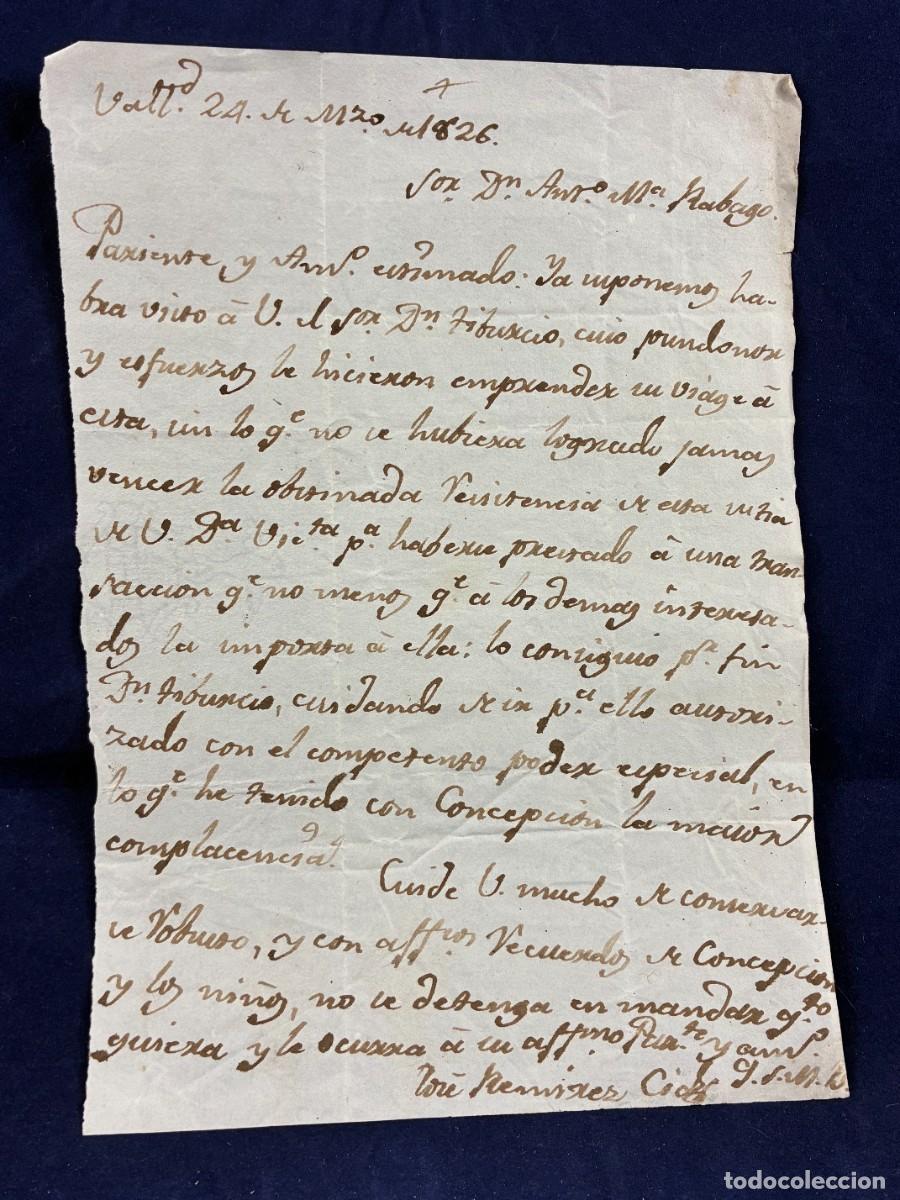 +
Vall.d 24. de Mzo. de 1826.
Sor. Dn. Anto. Ma. Rabago.
Pariente, y Amo. estimado: Ya suponemos ha-
bra visto â V. el Sor. Dn. Tiburcio, cuio pundonor
y esfuerzos le hicieron emprender su viage â
esta, sin lo qe. no se hubiera logrado jamas
vencer la obstinada resistencia de esta su tia
de V. Da. Victa. pa. haberse prestado â una tran-
saccion qe. no menos qe. â los demas interesa-
dos la importa â ella: lo consiguio pr. fin
Dn. Tiburcio, cuidando de ir pa. ello autori-
zado con el competente poder especial, en
lo qe. he tenido con Concepcion la maior
complacencia.
Cuide V. mucho de conservar-
se robusto, y con affos. recuerdos de Concepcion
y los niños, no se detenga en mandar qto.
quiera y le ocurra â su affmo. Parte. y amo.
Q. S. M. B.
José Remirez Cid
todocoleccion